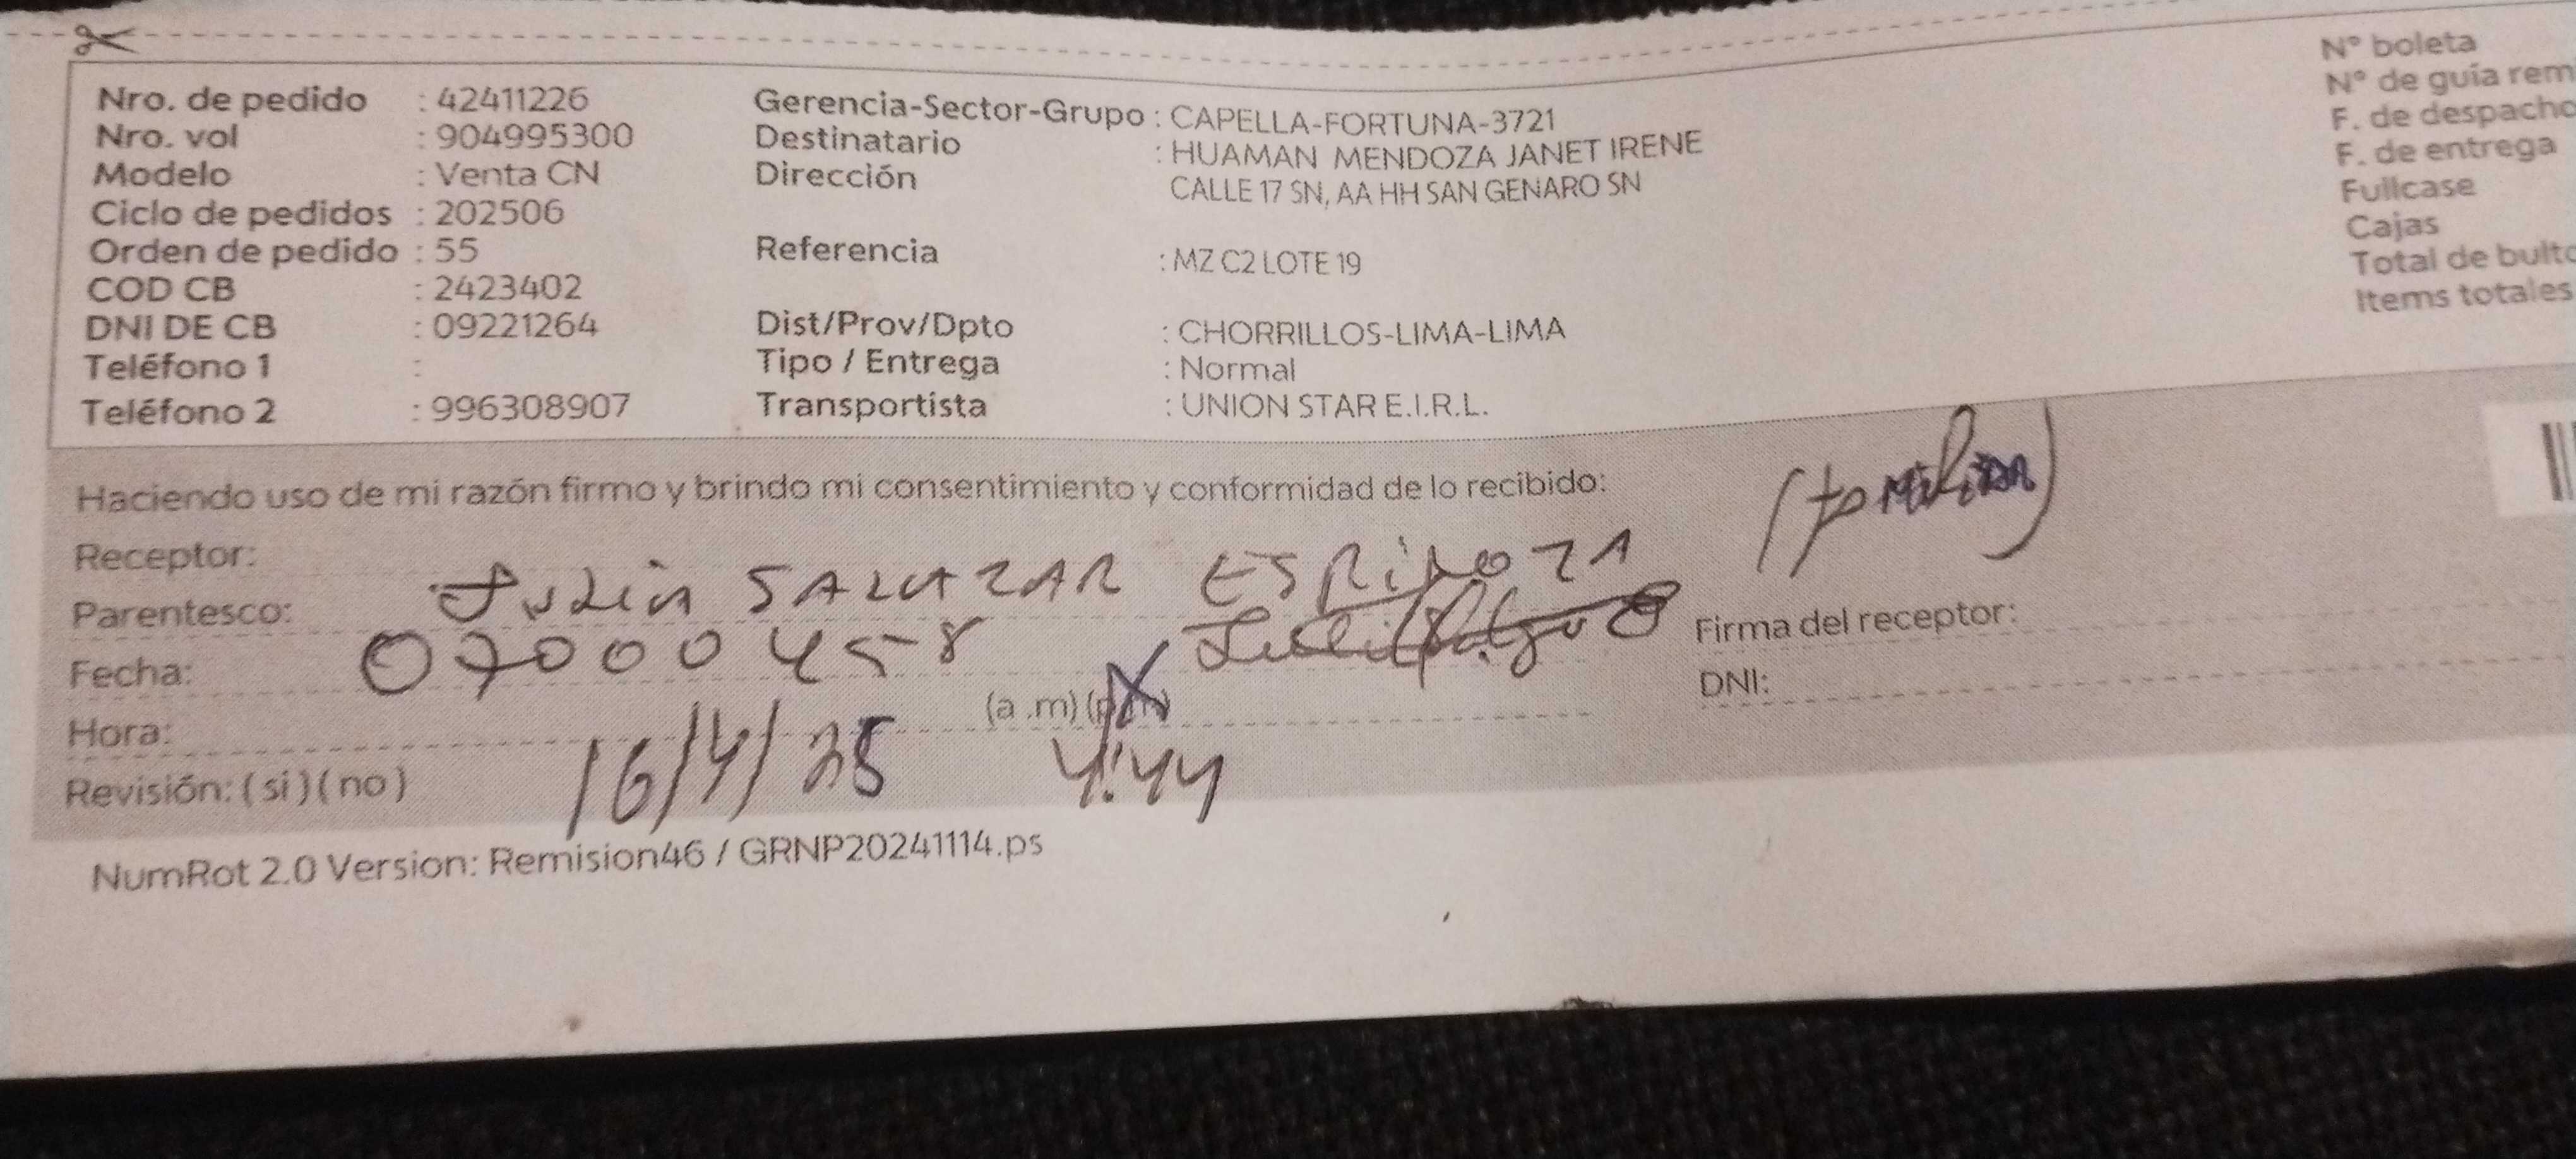 Nro. de pedido : 42411226
Nro. vol : 904995300
Modelo : Venta CN
Ciclo de pedidos : 202506
Orden de pedido : 55
COD CB : 2423402
DNI DE CB : 09221264
Teléfono 1 :
Teléfono 2 : 996308907
Gerencia-Sector-Grupo : CAPELLA-FORTUNA-3721
Destinatario : HUAMAN MENDOZA JANET IRENE
Dirección CALLE 17 SN, AA HH SAN GENARO SN
Referencia : MZ C2 LOTE 19
Dist/Prov/Dpto : CHORRILLOS-LIMA-LIMA
Tipo / Entrega : Normal
Transportista : UNION STAR E.I.R.L.
N° boleta
N° de guía rem
F. de despacho
F. de entrega
Fullcase
Cajas
Total de bulto
Items totales
Haciendo uso de mi razón firmo y brindo mi consentimiento y conformidad de lo recibido:
Receptor:
SALAZAR ESPINOZA
Parentesco:
07000458
Fecha:
(a .m) (p
Hora:
16/4/25 4:44
Revisión: ( si ) ( no )
Firma del receptor:
DNI:
NumRot 2.0 Version: Remision46 / GRNP20241114.ps